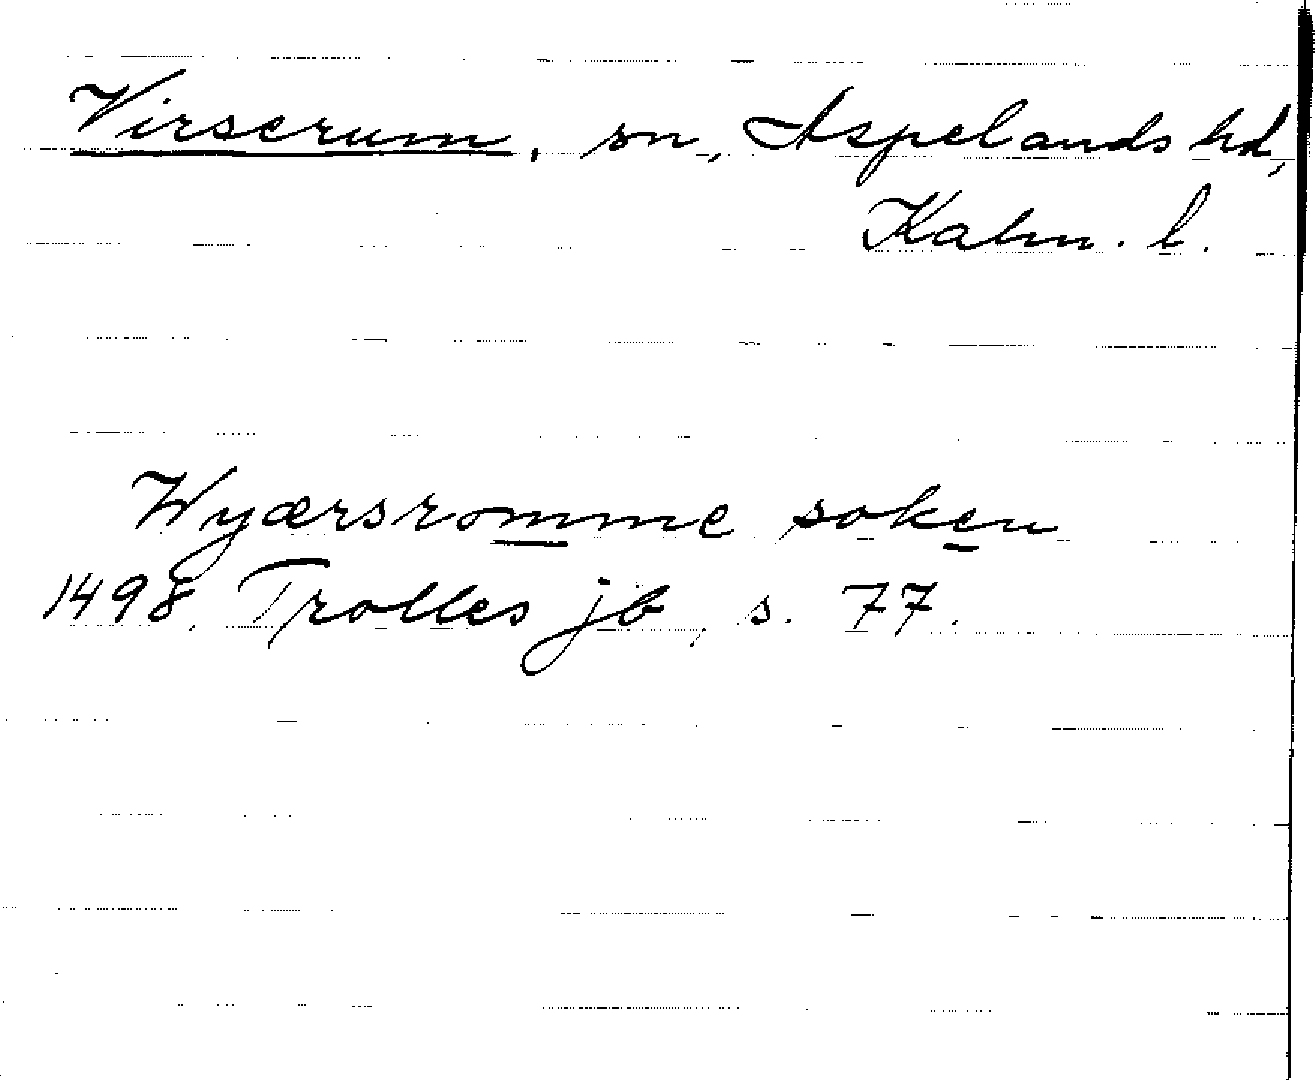 Virserum, sn, Aspelands hd,
Kalm. l.
Wyærsromme soken
1498. Trolles jb, s. 77.